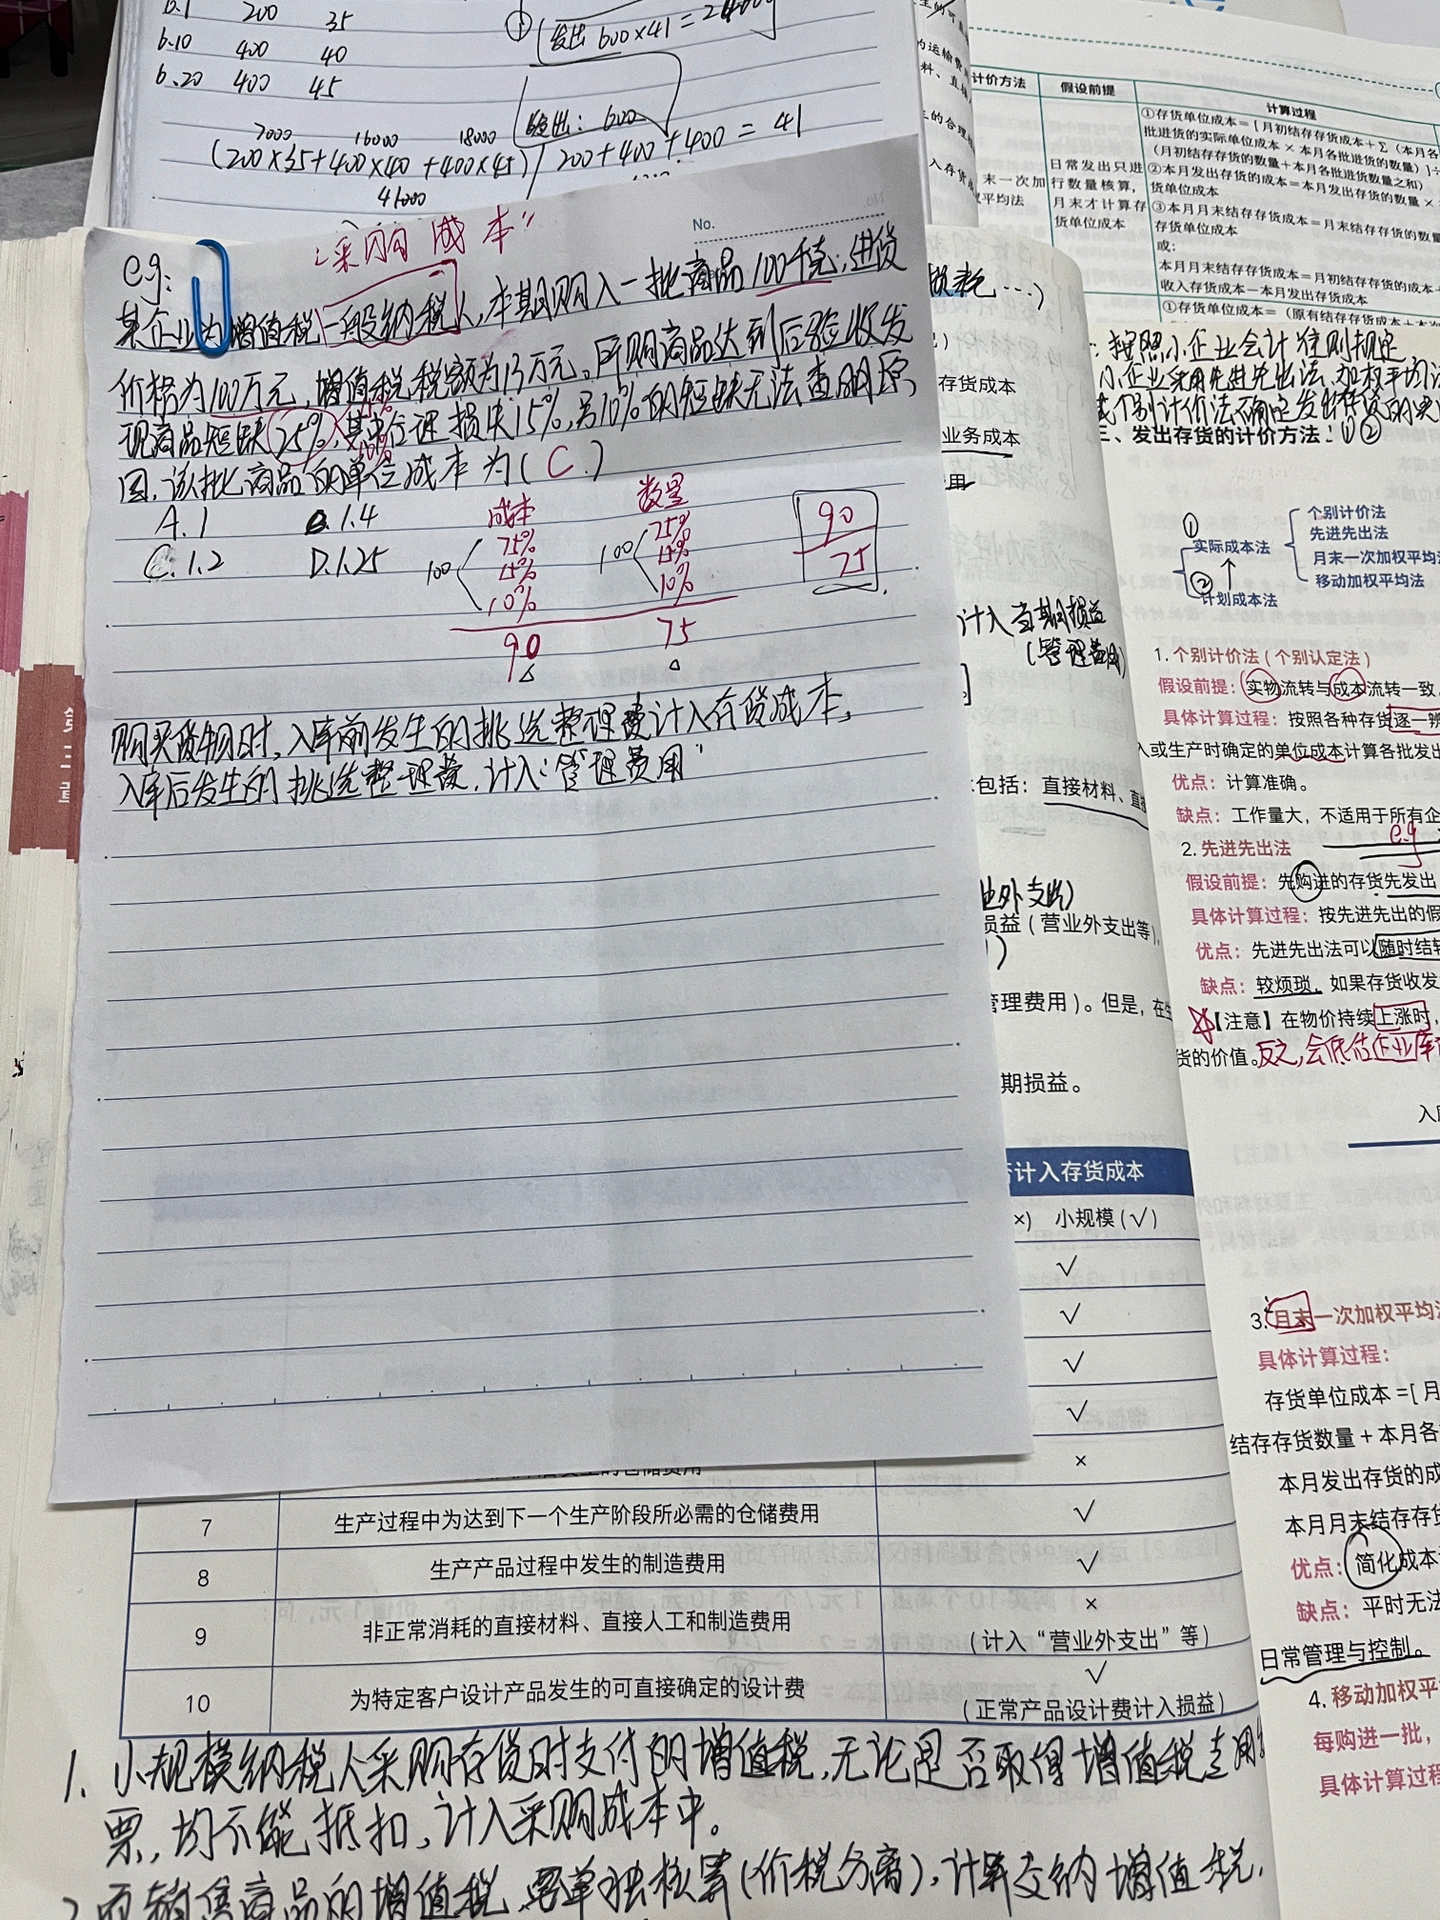 6.1 200 35
6.10 400 40
6.20 400 45
发出 600×41=
发出：600
7000 16000 18000
(200×35+400×40+400×45)/200+400+400=41
41000
计价方法 假设前提 计算过程
①存货单位成本=[月初结存存货成本+Σ（本月各
批进货的实际单位成本×本月各批进货的数量）]÷
（月初结存存货的数量+本月各批进货数量之和）
②本月发出存货的成本=本月发出存货的数量×
货单位成本
③本月月末结存存货成本=月末结存存货的数量
存货单位成本
或：
本月月末结存存货成本=月初结存存货的成本+
收入存货成本-本月发出存货成本
①存货单位成本=（原有结存存货成本+本次
末一次加
权平均法
日常发出只进
行数量核算，
月末才计算存
货单位成本
No.
“采购成本”
eg:
某企业为增值税一般纳税人，本期购入一批商品100千克，进货
价格为100万元，增值税税额为13万元。所购商品达到后验收发
现商品短缺25%，其中合理损失15%，另10%的短缺无法查明原
因，该批商品的单位成本为（C）
A.1 B.1.4
C.1.2 D.1.25
成本 数量
100 75% 15% 10%
100 75% 15% 10%
90 75
90
75
购买货物时，入库前发生的挑选整理费计入存货成本，
入库后发生的挑选整理费，计入：管理费用
第三章
存货成本
业务成本
计入当期损益
（管理费用）
包括：直接材料、直
业外支出）
损益（营业外支出等），
管理费用）。但是，在生
期损益。
计入存货成本
×） 小规模（√）
√
√
√
√
×
7 生产过程中为达到下一个生产阶段所必需的仓储费用 √
8 生产产品过程中发生的制造费用 √
9 非正常消耗的直接材料、直接人工和制造费用 ×
（计入“营业外支出”等）
10 为特定客户设计产品发生的可直接确定的设计费 √
（正常产品设计费计入损益）
1. 小规模纳税人采购存货时支付的增值税，无论是否取得增值税专用
票，均不能抵扣，计入采购成本中。
2 而销售商品的增值税，要单独核算（价税分离），计算交纳增值税，
：按照小企业会计准则规定
小企业采用先进先出法、加权平均法
或个别计价法确定发出存货的实
三、发出存货的计价方法：①②
① 实际成本法
个别计价法
先进先出法
月末一次加权平均法
移动加权平均法
② 计划成本法
1. 个别计价法（个别认定法）
假设前提：实物流转与成本流转一致。
具体计算过程：按照各种存货逐一辨
入或生产时确定的单位成本计算各批发出
优点：计算准确。
缺点：工作量大，不适用于所有企
eg
2. 先进先出法
假设前提：先购进的存货先发出
具体计算过程：按先进先出的假
优点：先进先出法可以随时结转
缺点：较烦琐，如果存货收发
【注意】在物价持续上涨时，
货的价值。反之，会低估企业库
3.月末一次加权平均法
具体计算过程：
存货单位成本=[月
结存存货数量+本月各
本月发出存货的成
本月月末结存存货
优点：简化成本
缺点：平时无法
日常管理与控制。
4. 移动加权平
每购进一批，
具体计算过程